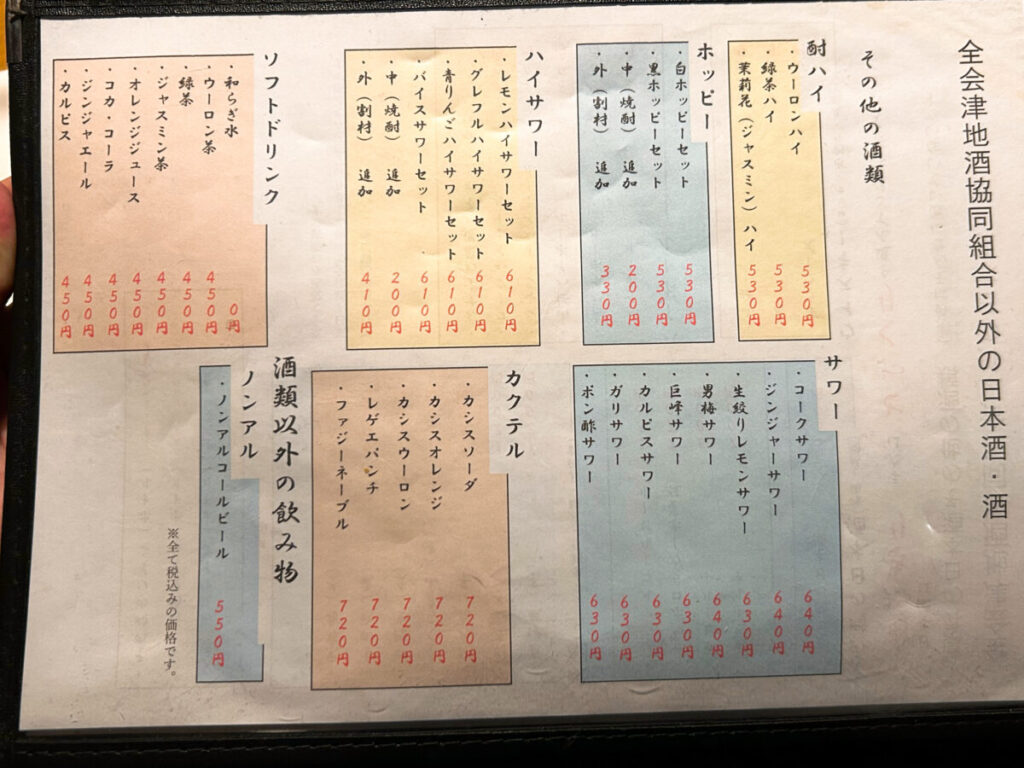 全会津地酒協同組合以外の日本酒・酒
その他の酒類
酎ハイ
・ウーロンハイ 530円
・緑茶ハイ 530円
・茉莉花（ジャスミン）ハイ 530円
ホッピー
・白ホッピーセット 530円
・黒ホッピーセット 530円
・中（焼酎） 追加 200円
・外（割材） 追加 330円
ハイサワー
・レモンハイサワーセット 610円
・グレフルハイサワーセット 610円
・青りんごハイサワーセット 610円
・バイスサワーセット 610円
・中（焼酎） 追加 200円
・外（割材） 追加 410円
サワー
・コークサワー 640円
・ジンジャーサワー 640円
・生絞りレモンサワー 630円
・男梅サワー 640円
・巨峰サワー 630円
・カルピスサワー 630円
・ガリサワー 630円
・ポン酢サワー 630円
カクテル
・カシスソーダ 720円
・カシスオレンジ 720円
・カシスウーロン 720円
・レゲエパンチ 720円
・ファジーネーブル 720円
酒類以外の飲み物
ソフトドリンク
・和らぎ水 0円
・ウーロン茶 450円
・緑茶 450円
・ジャスミン茶 450円
・オレンジジュース 450円
・コカ・コーラ 450円
・ジンジャエール 450円
・カルピス 450円
ノンアル
・ノンアルコールビール 550円
※全て税込みの価格です。